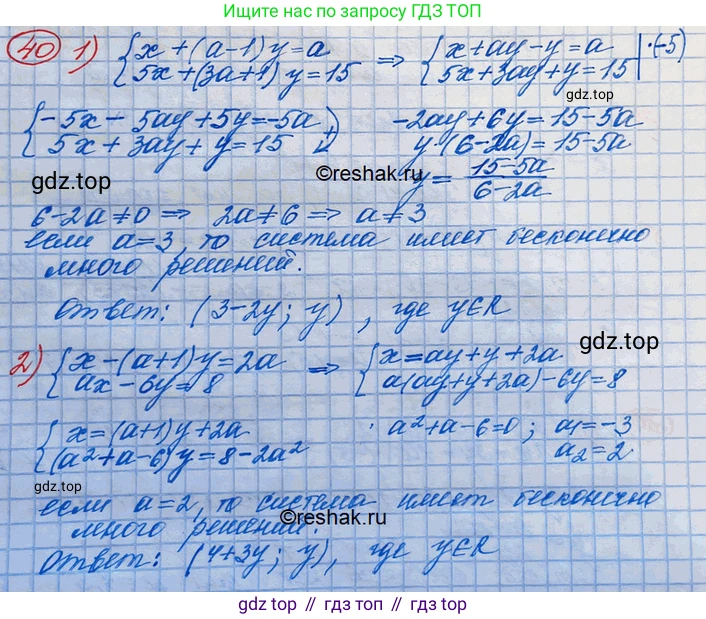 Ищите нас по запросу ГДЗ ТОП
40 1) {x + (a-1)y = a ⇒ {x+ay-y=a |·(-5)
{5x+(3a+1)y=15 {5x+3ay+y=15
gdz.top
{-5x-5ay+5y=-5a + -2ay+6y=15-5a
{5x+3ay+y=15 y·(6-2a)=15-5a
gdz.top ©reshak.ru y = (15-5a)/(6-2a)
6-2a≠0 ⇒ 2a≠6 ⇒ a≠3
если a=3, то система имеет бесконечно
много решений.
Ответ: (3-2y; y), где y∈R
gdz.top
2) {x-(a+1)y=2a ⇒ {x=ay+y+2a
{ax-6y=8 {a(ay+y+2a)-6y=8
{x=(a+1)y+2a a²+a-6=0; a₁=-3
{(a²+a-6)y=8-2a² a₂=2
gdz.top
если a=2, то система имеет бесконечно
много решений.
©reshak.ru
Ответ: (4+3y; y), где y∈R
gdz.top // гдз топ // гдз.топ